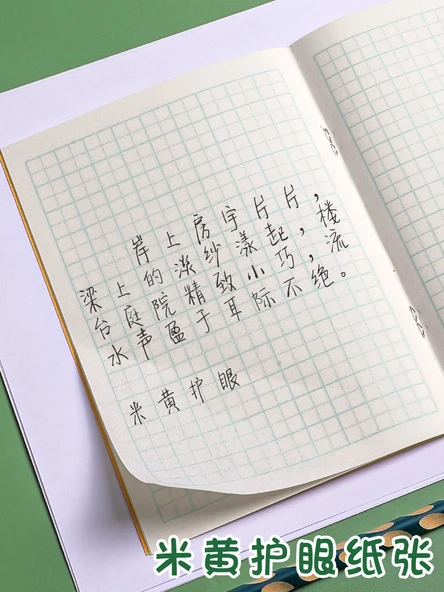 岸上房宇片片，
梁上的淡纱漾起，楼
台庭院精致小巧，流
水声盈于耳际不绝。
米黄护眼
米黄护眼纸张